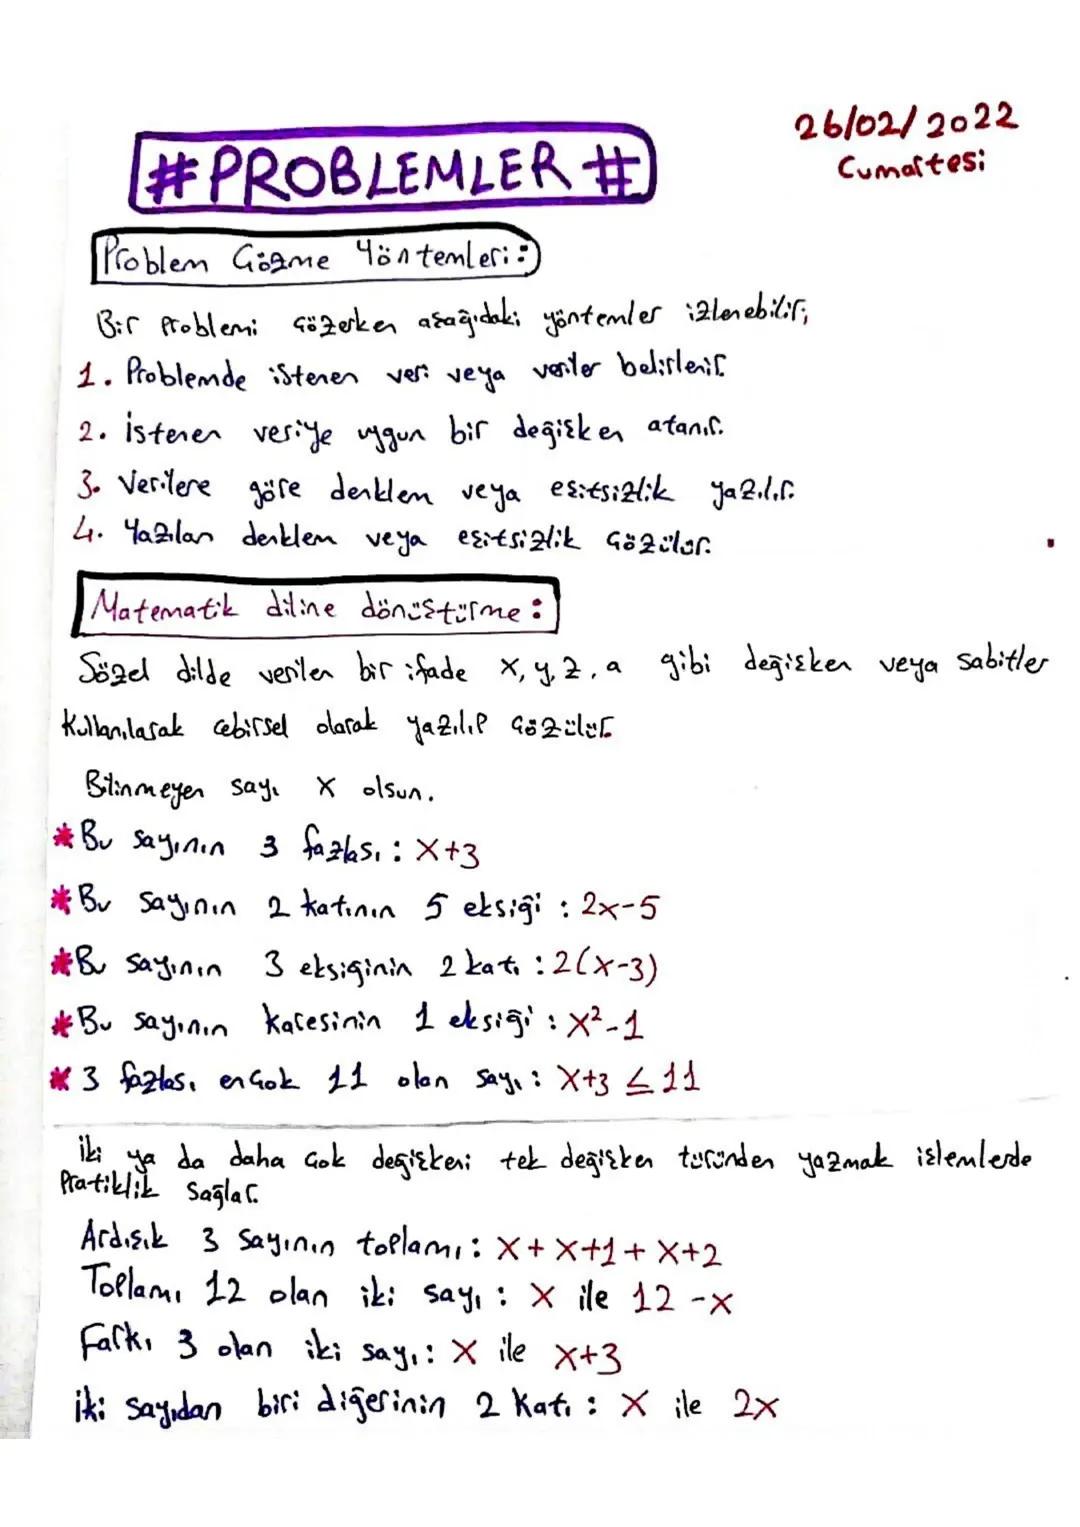 26/02/2022
Cumartesi
#PROBLEMLER#
Problem Çözme Yöntemleri:
Bir problemi çözerken aşağıdaki yöntemler izlenebilir;
1. Problemde istenen veri veya veriler belirlenir.
2. İstenen veriye uygun bir değişken atanır.
3. Verilere göre denklem veya eşitsizlik yazılır.
4. Yazılan denklem veya eşitsizlik çözülür.
Matematik diline dönüştürme:
Sözel dilde verilen bir ifade x, y, z, a gibi değişken veya sabitler
kullanılarak cebirsel olarak yazılıp çözülür.
Bilinmeyen sayı x olsun.
* Bu sayının 3 fazlası: x+3
* Bu sayının 2 katının 5 eksiği: 2x-5
* Bu sayının 3 eksiğinin 2 katı: 2(x-3)
* Bu sayının karesinin 1 eksiği: x²-1
* 3 fazlası en çok 11 olan sayı: x+3 ≤ 11
İki ya da daha çok değişkeni tek değişken türünden yazmak işlemlerde
pratiklik sağlar.
Ardışık 3 sayının toplamı: x+x+1+x+2
Toplamı 12 olan iki sayı: x ile 12-x
Farkı 3 olan iki sayı: x ile x+3
İki sayıdan biri diğerinin 2 katı: x ile 2x